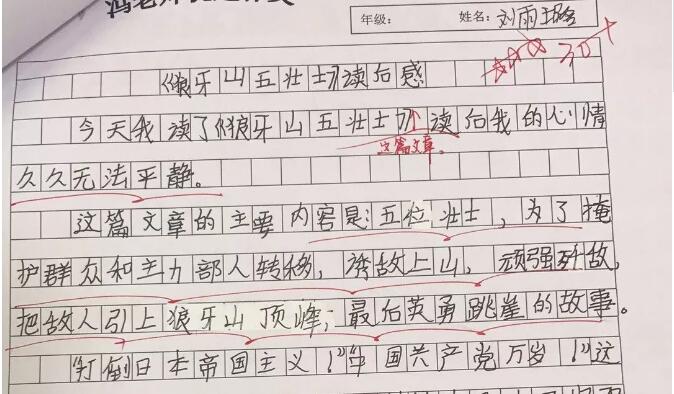 年级： 姓名：刘雨璐
30+
《狼牙山五壮士》读后感
今天我读了《狼牙山五壮士》读后我的心情
这篇文章。
久久无法平静。
这篇文章的主要内容是：五位壮士，为了掩
护群众和主力部人转移，诱敌上山，顽强歼敌，
把敌人引上狼牙山顶峰；最后英勇跳崖的故事。
“打倒日本帝国主义！”“中国共产党万岁！”这